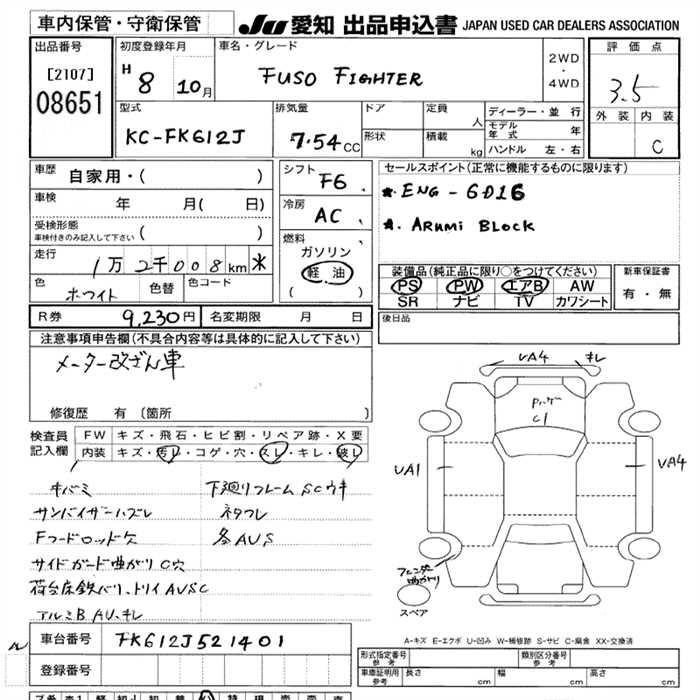 車内保管・守衛保管
JU 愛知 出品申込書 JAPAN USED CAR DEALERS ASSOCIATION
出品番号
[2107]
08651
初度登録年月
H 8 10月
車名・グレード
FUSO FIGHTER
2WD
・
4WD
評価点
3.5
外装 内装
C
型式
KC-FK612J
排気量
7.54 CC
ドア
形状
定員
人
積載
kg
ディーラー・並行
モデル年式 年
ハンドル 左・右
車歴 自家用・( )
車検 年 月( 日)
受検形態
車検付きのみ記入して下さい ( )
走行 1万2千008km ＊
色 ホワイト 色替 色コード
シフト F6
冷房 AC
燃料
ガソリン
軽油
( )
セールスポイント(正常に機能するものに限ります)
★. ENG - 6D16
★. ARUMI BLOCK
装備品(純正品に限り○をつけてください)
PS PW エアB AW
SR ナビ TV カワシート
新車保証書
有・無
R券 9,230円 名変期限 月 日
後日品
注意事項申告欄(不具合内容等は具体的に記入して下さい)
メーター改ざん車
修復歴 有 [箇所 ]
検査員
記入欄
FW キズ・飛石・ヒビ割・リペア跡・X要
内装 キズ・汚レ・コゲ・穴・スレ・キレ・破レ
キバミ
サンバイザーハズレ
Fフードロッド欠
サイドガード曲がりC穴
荷台床鉄バリ、トリイAUSC
アルミB AU、キレ
下廻りフレームSCウキ
ネタフレ
各AUS
UA4 キレ
C1
UA1
UA4
フェンダー曲がり
スペア
A-キズ E-エクボ U-凹み W-補修跡 S-サビ C-腐食 XX-交換済
車台番号 FK612J521401
登録番号
形式指定番号
参考
類別区分番号
参考
車庫証明用
参考
長さ cm 幅 cm 高さ cm